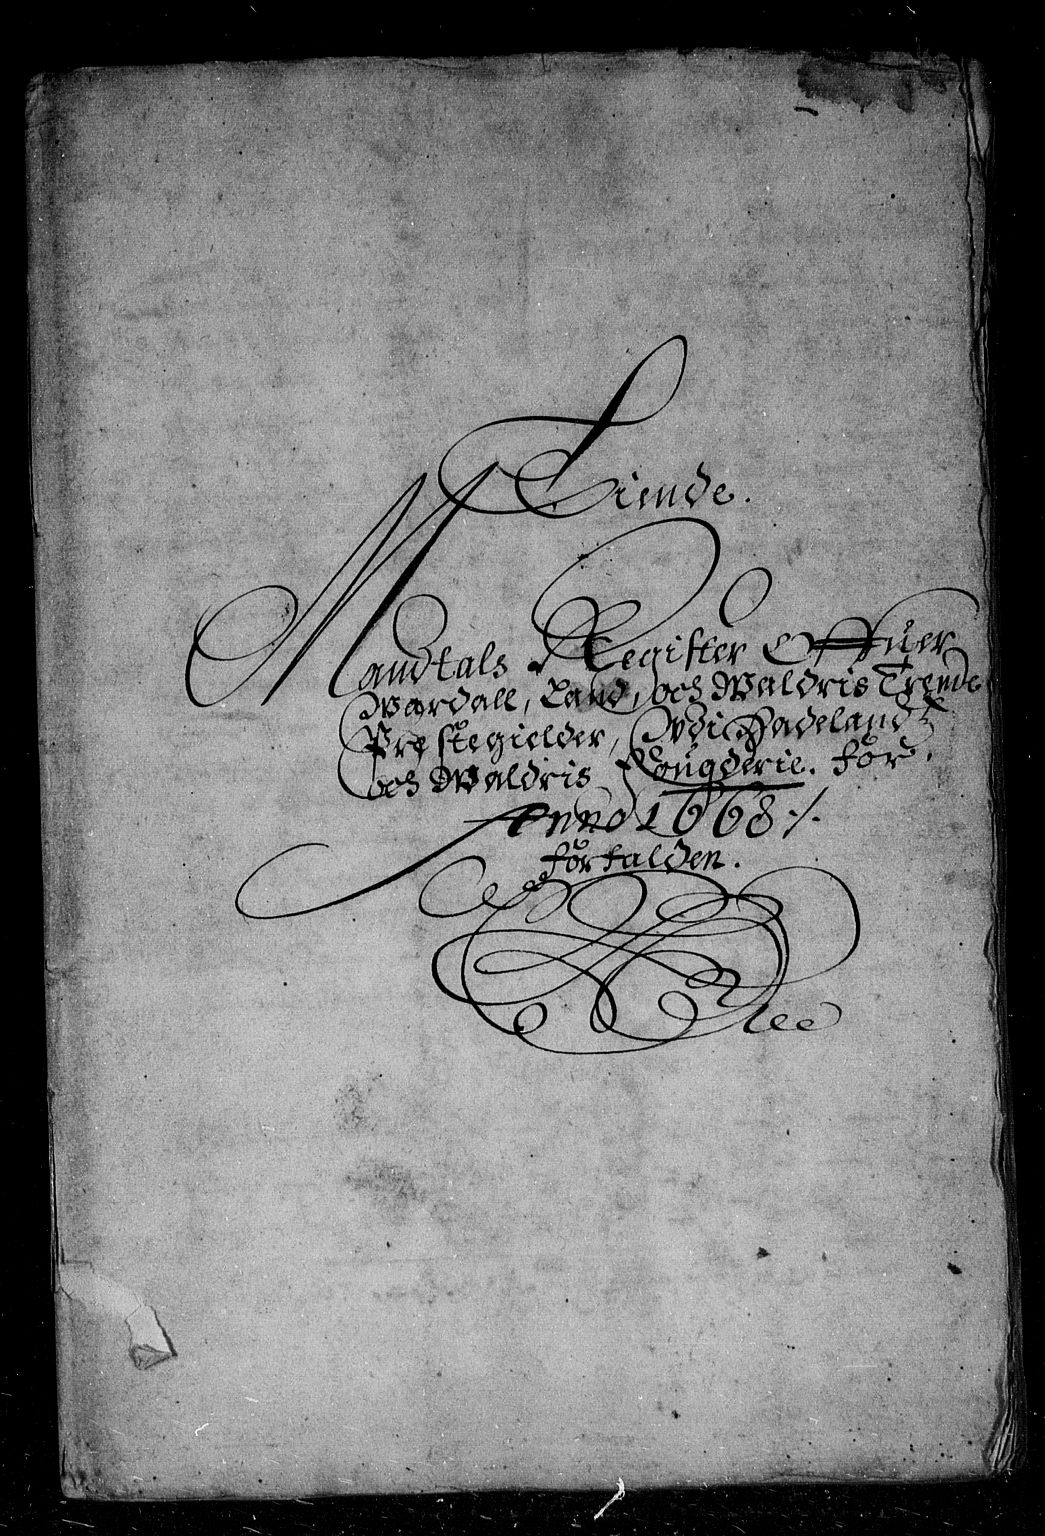 Tiende.
Mandtals Register Offuer
Wardall, Land, och Waldris Trende
Prestegielder, Vdi Hadeland
och Waldris Fougderie. för
Anno 1668 ./.
förfalden.